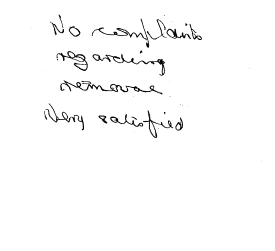 No complaints
regarding
removal
Very satisfied